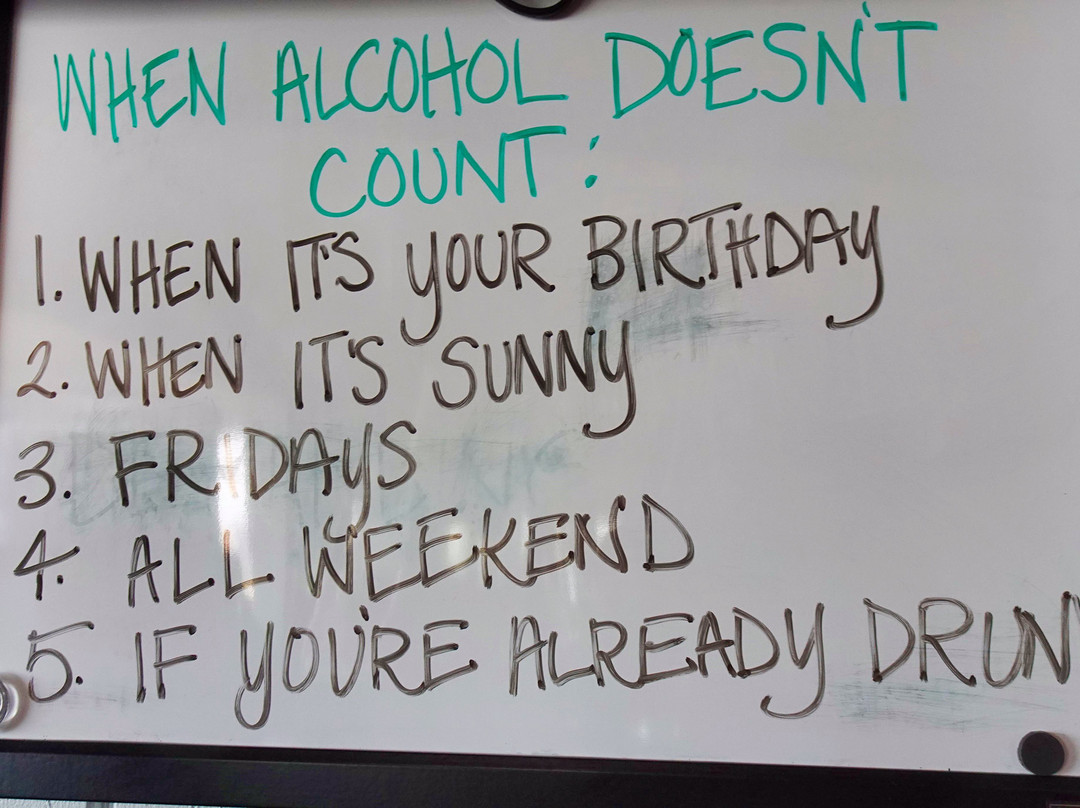 WHEN ALCOHOL DOESN'T
COUNT:
1. WHEN IT'S YOUR BIRTHDAY
2. WHEN IT'S SUNNY
3. FRIDAYS
4. ALL WEEKEND
5. IF YOU'RE ALREADY DRUN